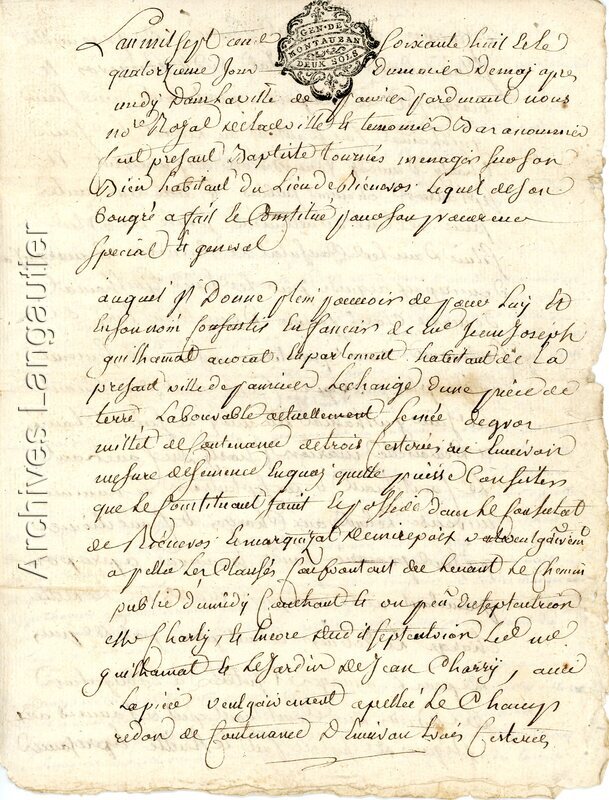 GEN. DE
MONTAUBAN
DEUX SOLS
Lan mil sept cens Soixante huit et le
quatorzieme Jour du mois De may apres
midy Dans la ville de pamiers pardevant nous
no.re Royal de lad. ville et temoins bas nommés
feut presant Baptiste tournés menager sur son
Bien habitant du Lieu de Rieucros lequel de son
bon gré a fait et Constitué pour son procureur
special et general
auquel Jl Donne plein pouvoir de pour Luy et
En son nom Consentir En faveur de me Jean Joseph
guilhamat avocat En parlement habitant de La
presant ville de pamiers Lechange d'une piece de
terre Labourable actuellement semée de gros
millét de Contenance de trois Cesterées ou Environ
mesure de semence En quoy quelle puisse Consister
que le Constituant jouit Et possede dans le Consulat
de Rieucros le marquizat de mirepoix vulgairemt
apellée Les Clauses Confrontant de Levant le Chemin
public du midy Couchant et un peu de septentrion
Charly, et Encore dud. septentrion Led. me
guilhamat et Le Jardin De Jean Charry, avec
La piece vulgairement apellée Le Champ
redon de Contenance D'Environ trois Cesterées
Archives Langautier